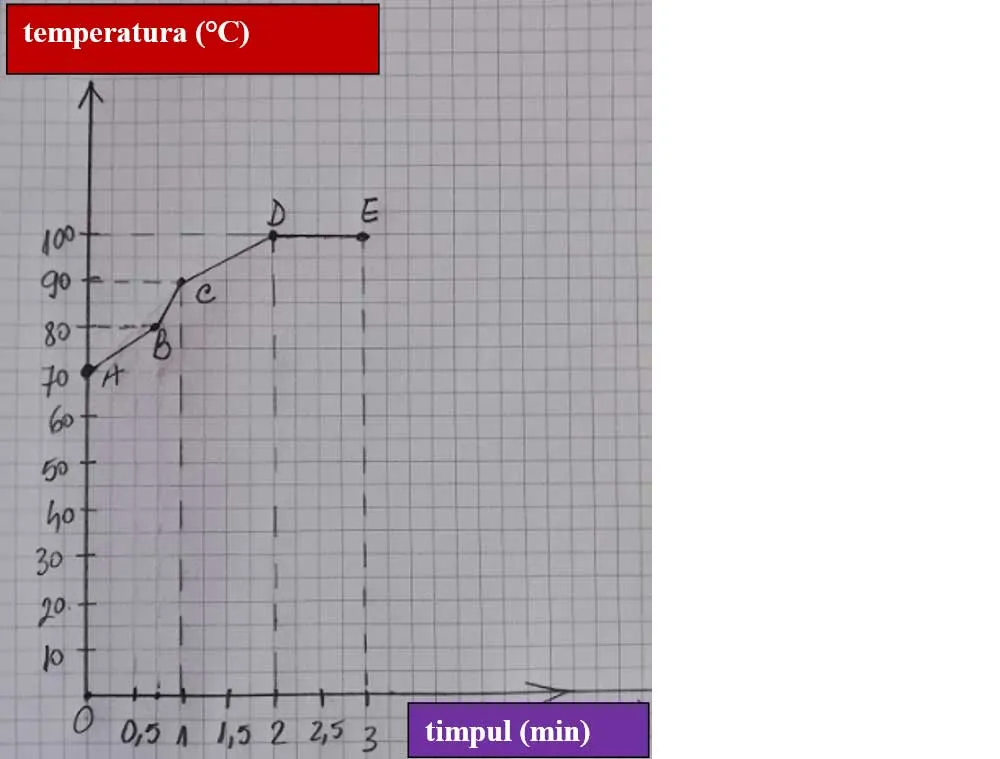 temperatura (°C)
D
E
100
90
C
80
B
70
A
60
50
40
30
20
10
0
0,5
1
1,5
2
2,5
3
timpul (min)